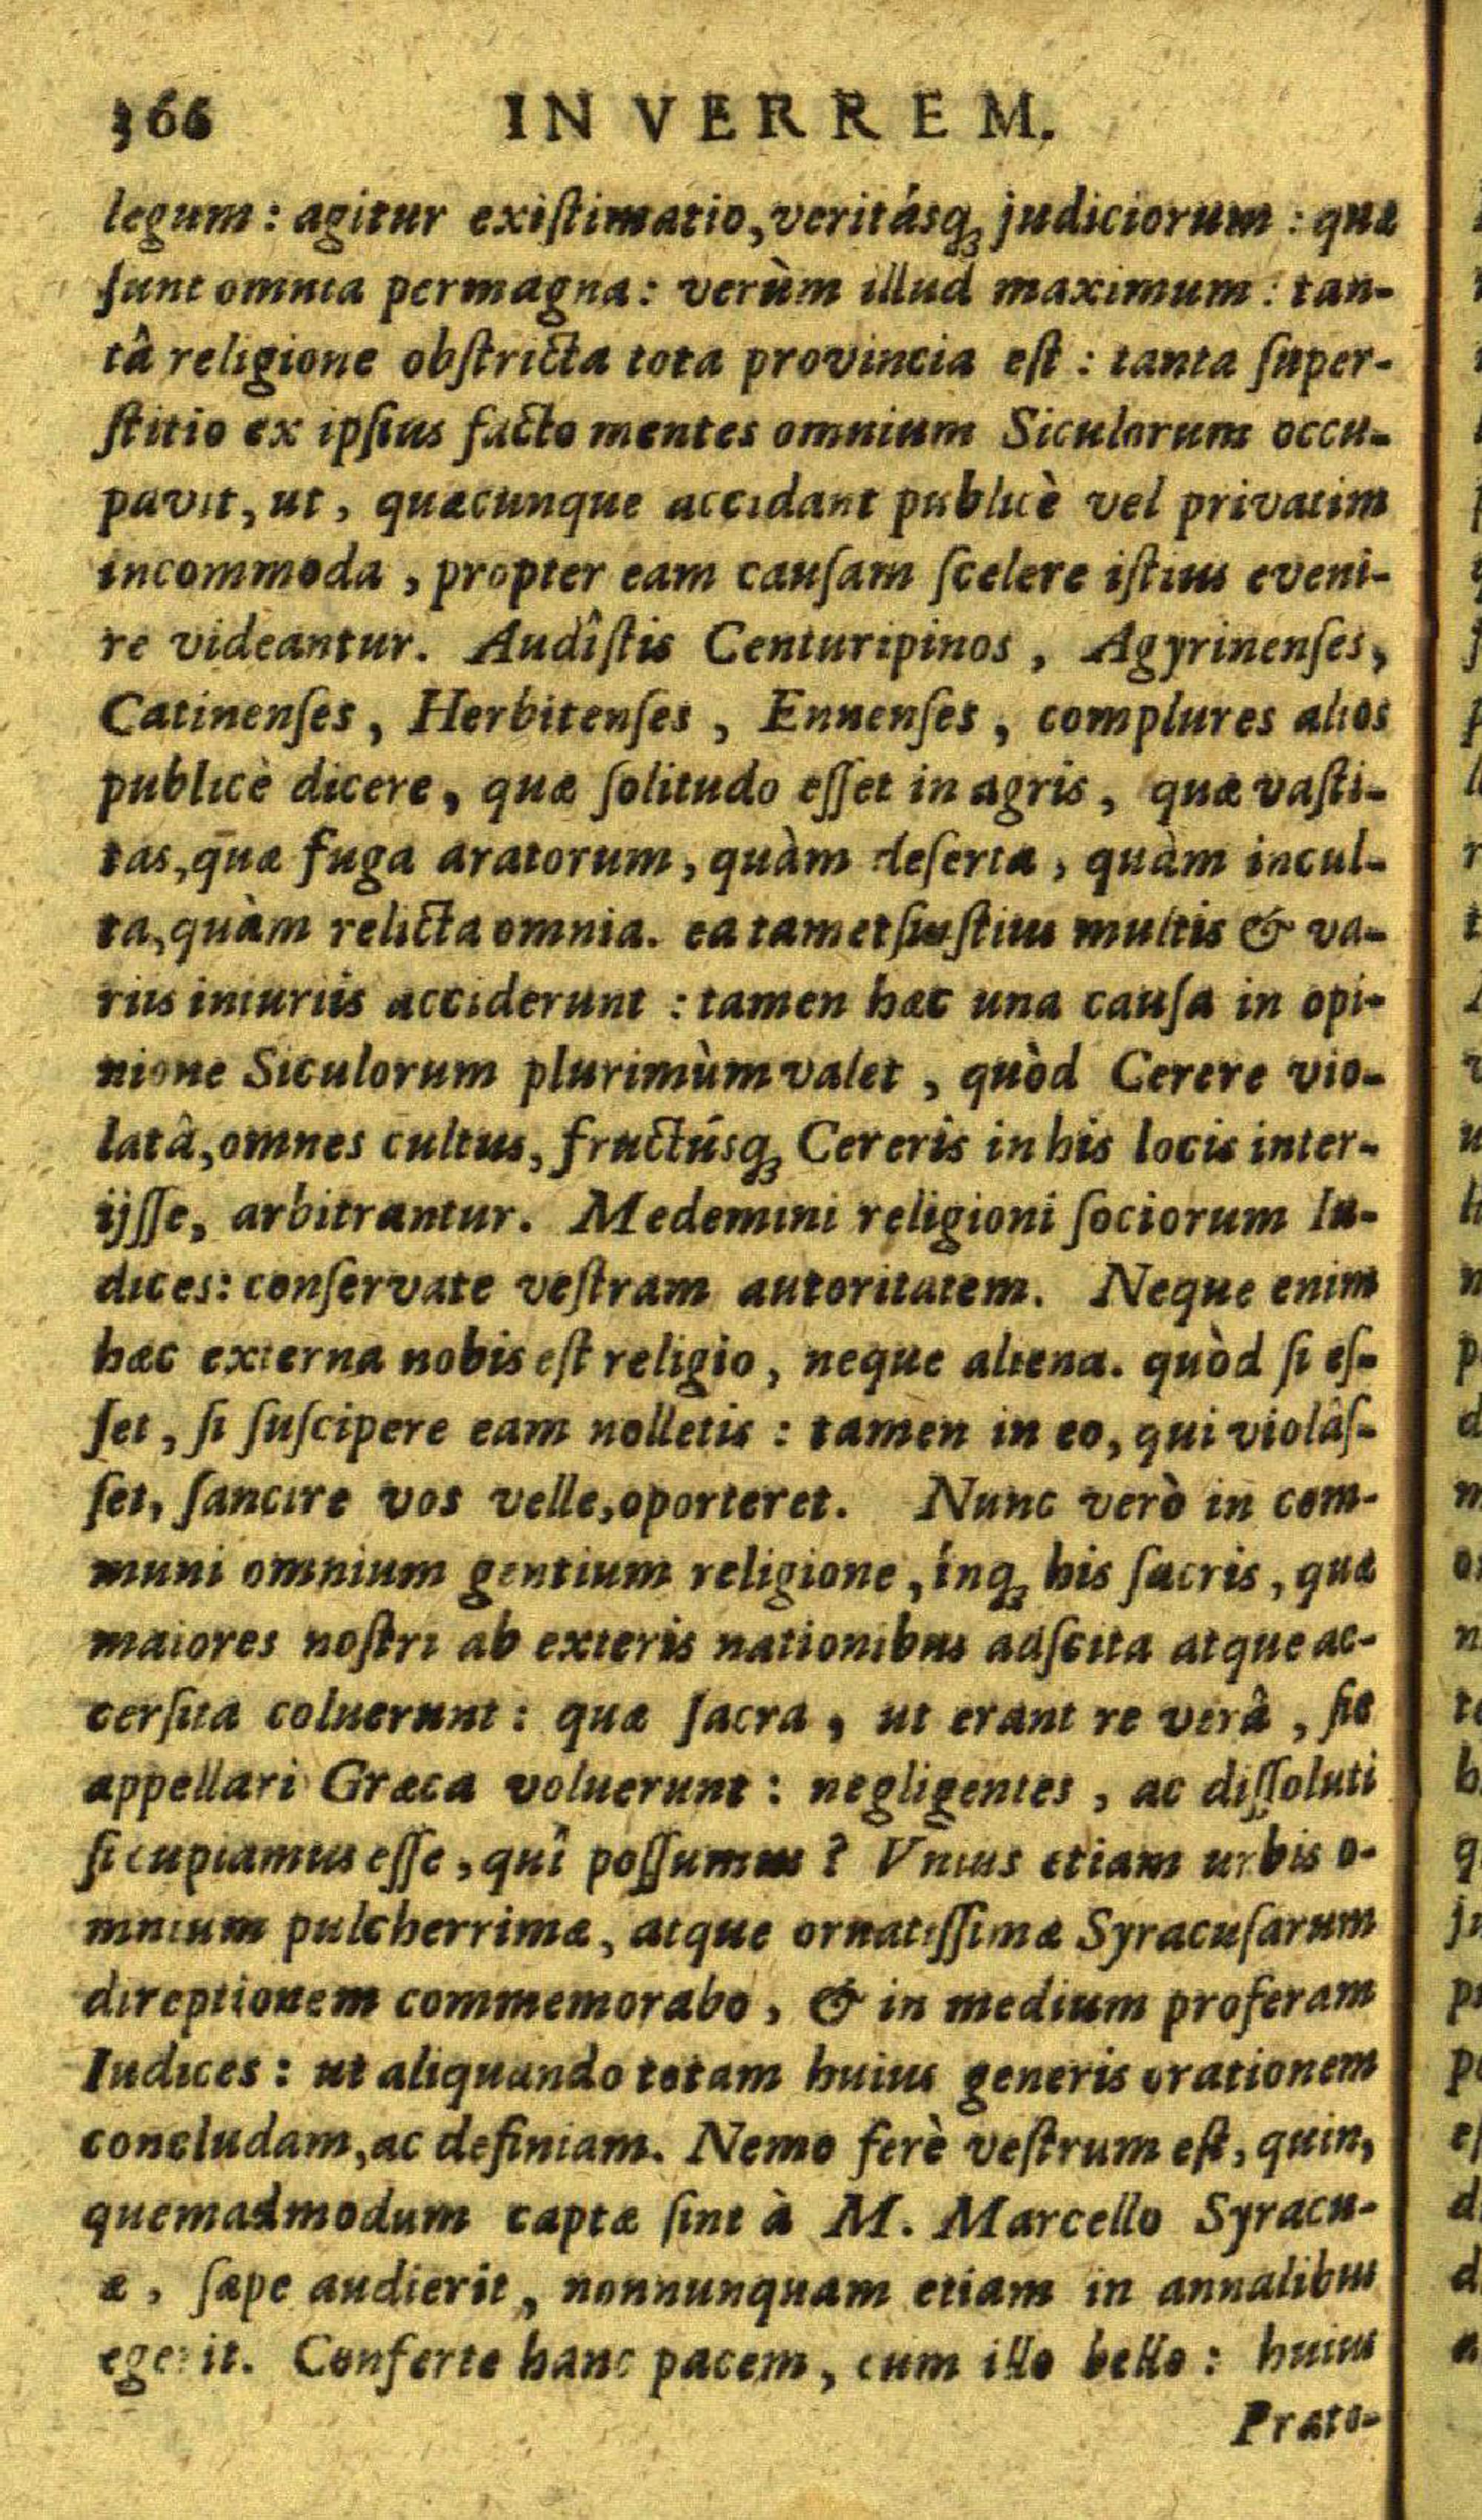 366 IN VERREM.
legum: agitur exiſtimatio, veritásq; judiciorum: quæ
ſunt omnia permagna: verùm illud maximum: tan-
tâ religione obſtricta tota provincia eſt: tanta ſuper-
ſtitio ex ipſius facto mentes omnium Siculorum occu-
pavit, ut, quæcunque accidant publicè vel privatim
incommoda, propter eam cauſam ſcelere iſtius eveni-
re videantur. Audîſtis Centuripinos, Agyrinenſes,
Catinenſes, Herbitenſes, Ennenſes, complures alios
publicè dicere, quæ ſolitudo eſſet in agris, quæ vaſti-
tas, quæ fuga aratorum, quàm deſerta, quàm incul-
ta, quàm relicta omnia. ea tametſi iſtius multis & va-
riis iniuriis acciderunt: tamen hæc una cauſa in opi-
nione Siculorum plurimùm valet, quòd Cerere vio-
latâ, omnes cultus, fructúsq; Cereris in his locis inter-
ijſſe, arbitrantur. Medemini religioni ſociorum Iu-
dices: conſervate veſtram autoritatem. Neque enim
hæc externa nobis eſt religio, neque aliena. quòd ſi eſ-
ſet, ſi ſuſcipere eam nolletis: tamen in eo, qui violâſ-
ſet, ſancire vos velle, oporteret. Nunc verò in com-
muni omnium gentium religione, ínq; his ſacris, quæ
maiores noſtri ab exteris nationibus adſcita atque ac-
cerſita coluerunt: quæ ſacra, ut erant re verâ, ſic
appellari Græca voluerunt: negligentes, ac diſſoluti
ſi cupiamus eſſe, quî poſſumus? Vnius etiam urbis o-
mnium pulcherrimæ, atque ornatiſſimæ Syracuſarum
direptionem commemorabo, & in medium proferam
Iudices: ut aliquando totam huius generis orationem
concludam, ac definiam. Nemo ferè veſtrum eſt, quin,
quemadmodum captæ ſint à M. Marcello Syracu-
æ, ſæpe audierit, nonnunquam etiam in annalibus
egerit. Conferte hanc pacem, cum illo bello: huius
Præto-